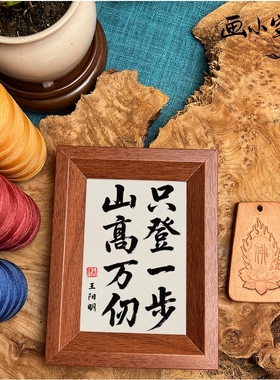 画小
只登一步
山高万仞
王阳明
佛